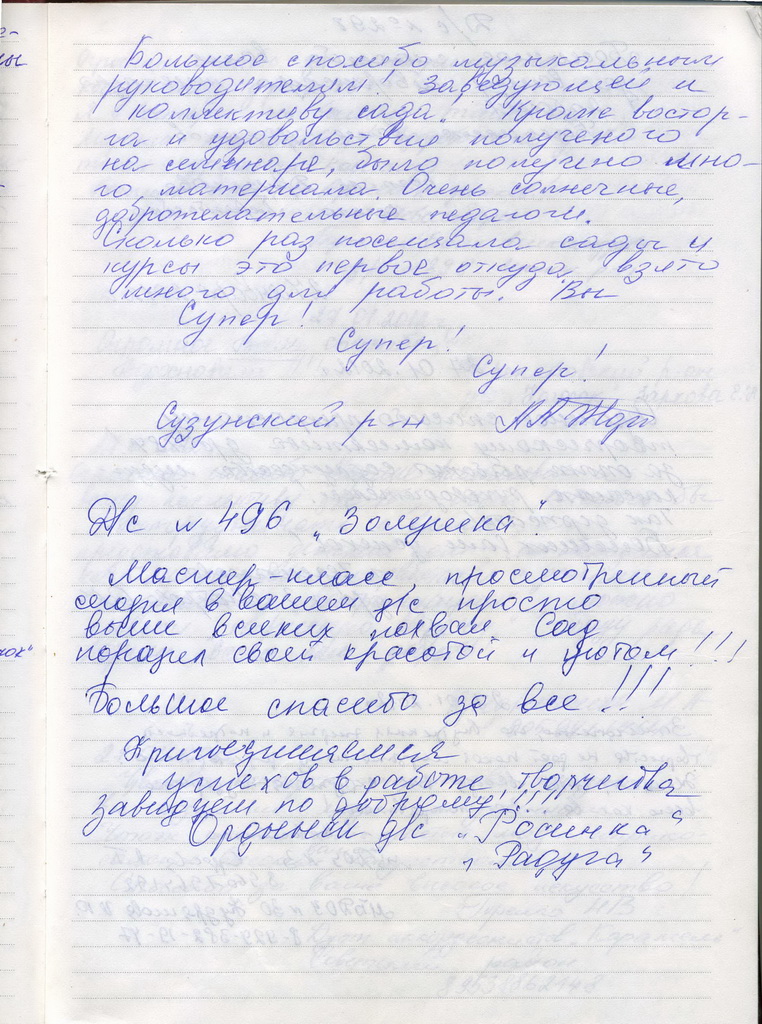 Большое спасибо музыкальным
руководителям! Заведующей и
коллективу сада. Кроме востор-
га и удовольствия полученого
на семинаре, было получено мно-
го материала. Очень солнечные,
доброжелательные педагоги.
Сколько раз посещала сады и
курсы это первое откуда взято
много для работы. Вы
Супер!
Супер!
Супер!
Сузунский р-н
Д/с № 496 „Золушка".
Мастер-класс, просмотренный
сегодня в вашем д/с просто
выше всяких похвал Сад
поразил своей красотой и уютом!!!
Большое спасибо за все!!!
Присоединяемся
успехов в работе, творчества
завидуем по доброму!!!!
Ордынский д/с „Росинка"
„Радуга"